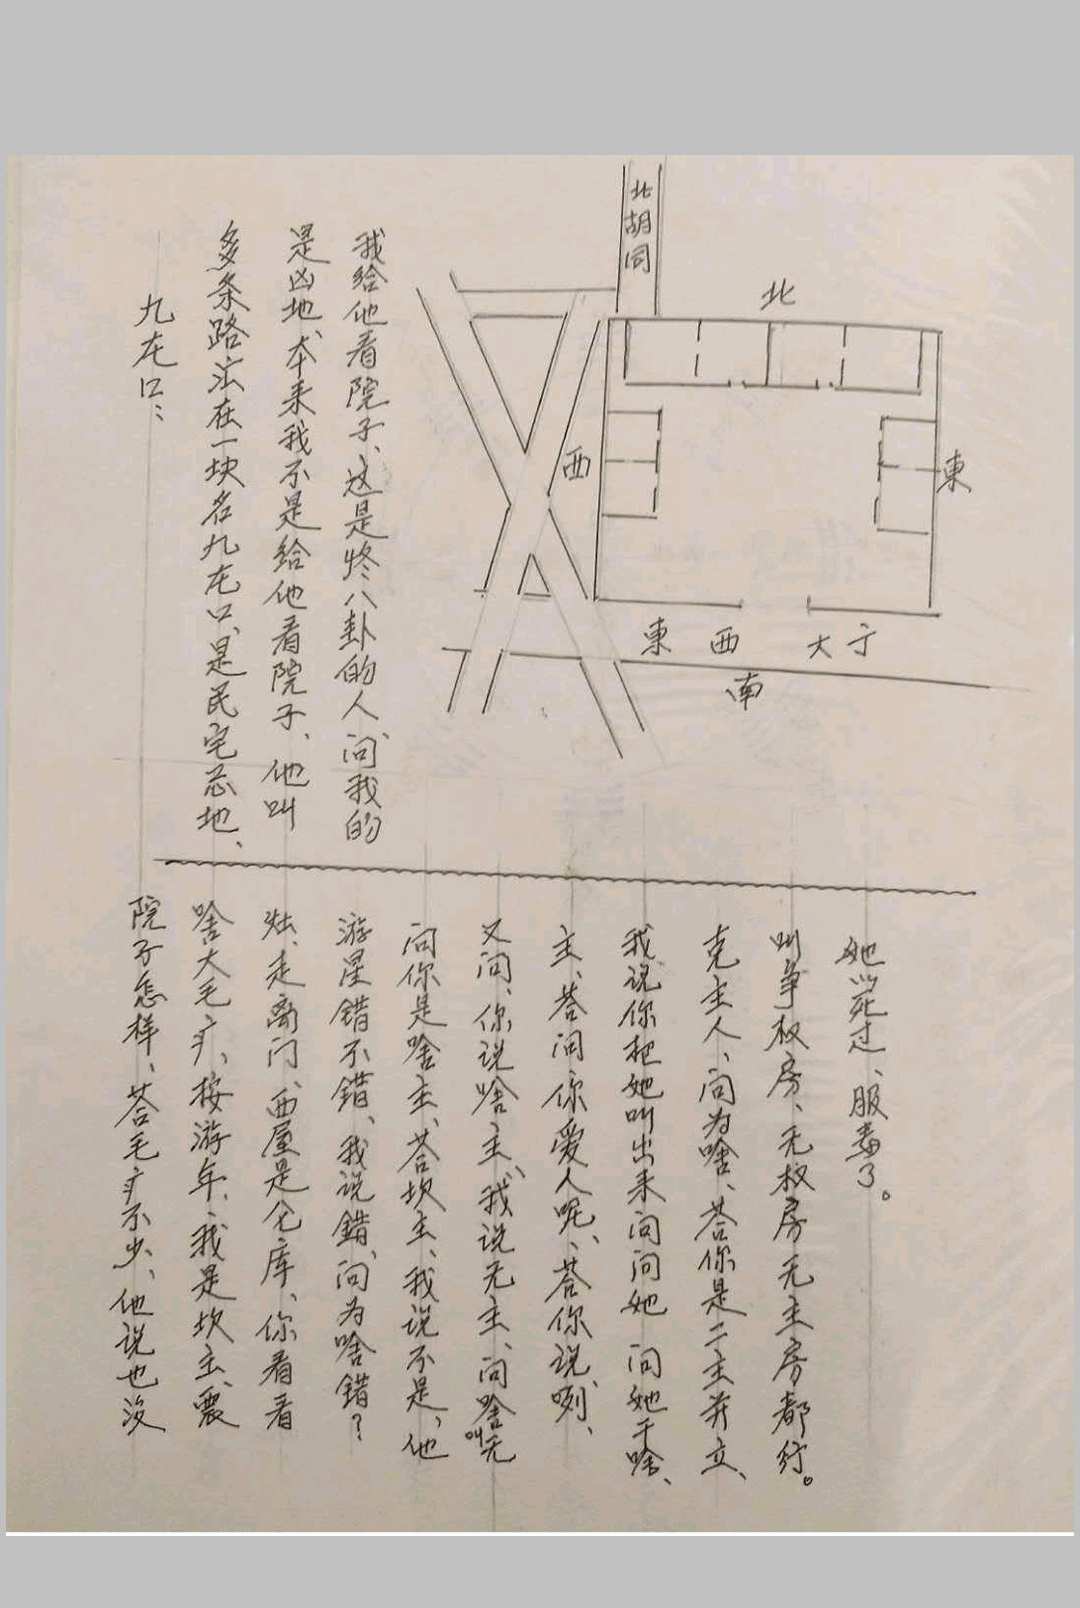 九龙口：
多条路㳒在一块名九龙口、是民宅忌地、
是凶地、本来我不是给他看院子、他叫
我给他看院子、这是修八卦的人、问我的
北胡同
北
西
東
東西大亍
南
院子怎样、荅毛疒不少、他说也没
啥大毛疒、按游年、我是坎主、震
灶、走离门、西屋是仓库、你看看
游星错不错、我说錯、问为啥错？
问你是啥主、荅坎主、我说不是、他
又问、你说啥主、我说无主、问啥叫无
主、荅问你爱人呢、荅你说咧、
我说你把她叫出来问问她 问她干啥、
克主人、问为啥、荅你是二主并立、
叫争权房、无权房无主房都行。
她以死过、服毒了。